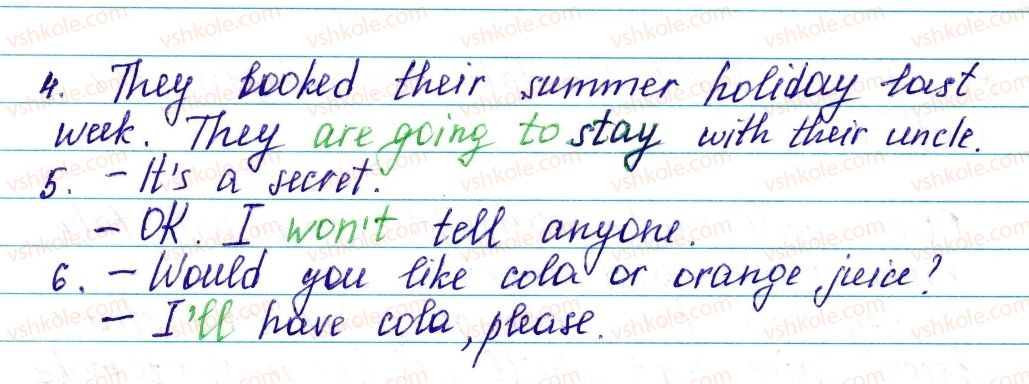 4. They booked their summer holiday last
week. They are going to stay with their uncle.
5. - It's a secret.
- OK. I won't tell anyone.
6. - Would you like cola or orange juice?
- I'll have cola, please.